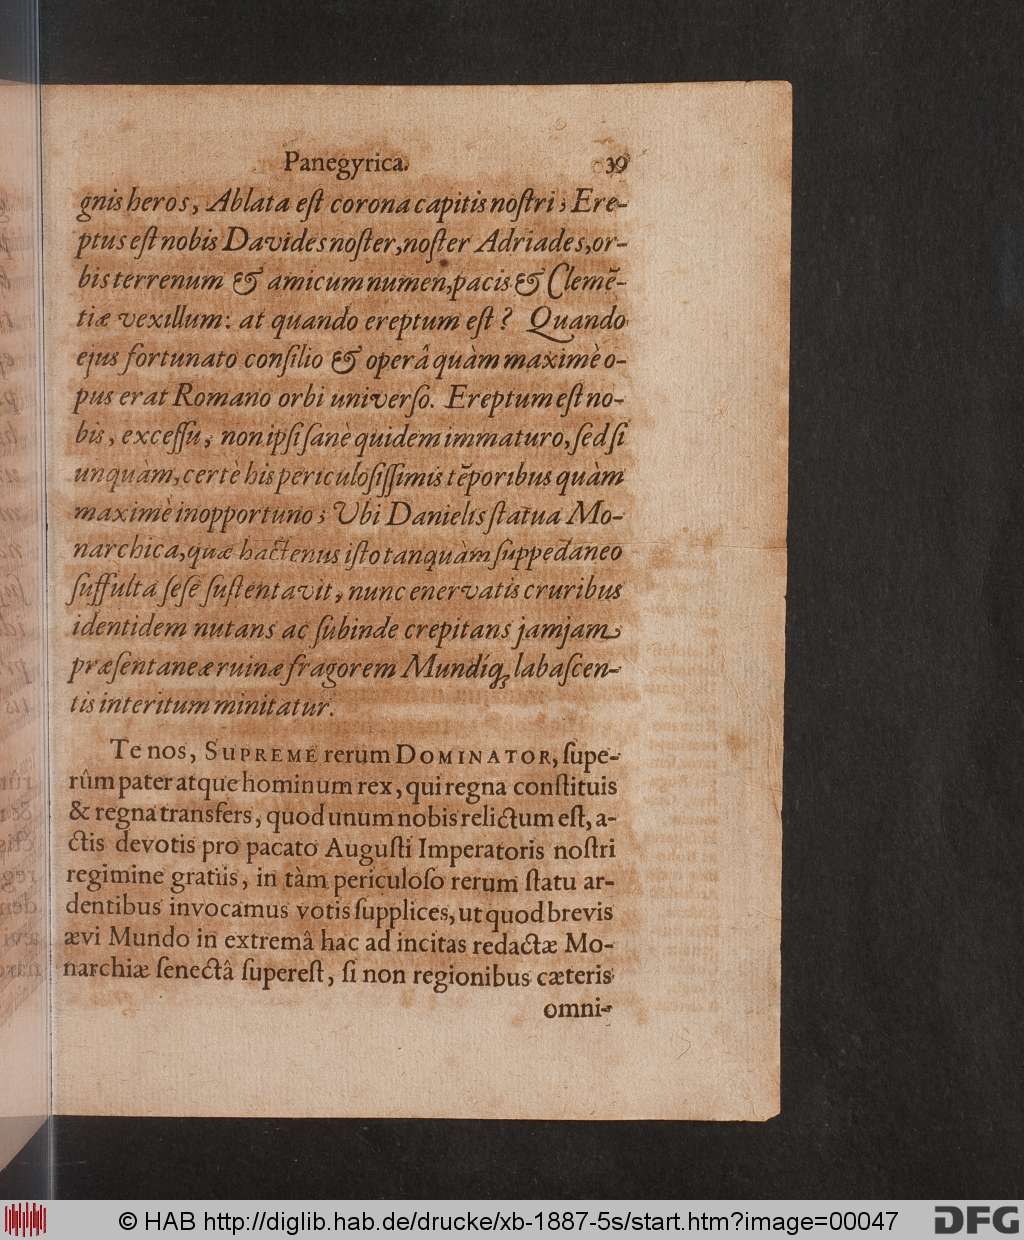 Panegyrica. 39
gnis heros, Ablata eſt corona capitis noſtri; Ere-
ptus eſt nobis Davides noſter, noſter Adriades, or-
bis terrenum & amicum numen, pacis & Clemẽ-
tiæ vexillum: at quando ereptum eſt? Quando
ejus fortunato conſilio & operâ quàm maximè o-
pus erat Romano orbi univerſo. Ereptum eſt no-
bis, exceſſu, non ipſi ſanè quidem immaturo, ſed ſi
unquàm, certè his periculoſiſſimis tẽporibus quàm
maximè inopportuno; Ubi Danielis ſtatua Mo-
narchica, quæ hactenus iſto tanquàm ſuppedaneo
ſuffulta ſeſe ſuſtentavit, nunc enervatis cruribus
identidem nutans ac ſubinde crepitans jamjam
præſentaneæ ruinæ fragorem Mundíq; labaſcen-
tis interitum minitatur.
Te nos, SUPREME rerum DOMINATOR, ſupe-
rûm pater atque hominum rex, qui regna conſtituis
& regna transfers, quod unum nobis relictum eſt, a-
ctis devotis pro pacato Auguſti Imperatoris noſtri
regimine gratiis, in tàm periculoſo rerum ſtatu ar-
dentibus invocamus votis ſupplices, ut quod brevis
ævi Mundo in extremâ hac ad incitas redactæ Mo-
narchiæ ſenectâ ſupereſt, ſi non regionibus cæteris
omni-
© HAB http://diglib.hab.de/drucke/xb-1887-5s/start.htm?image=00047 DFG